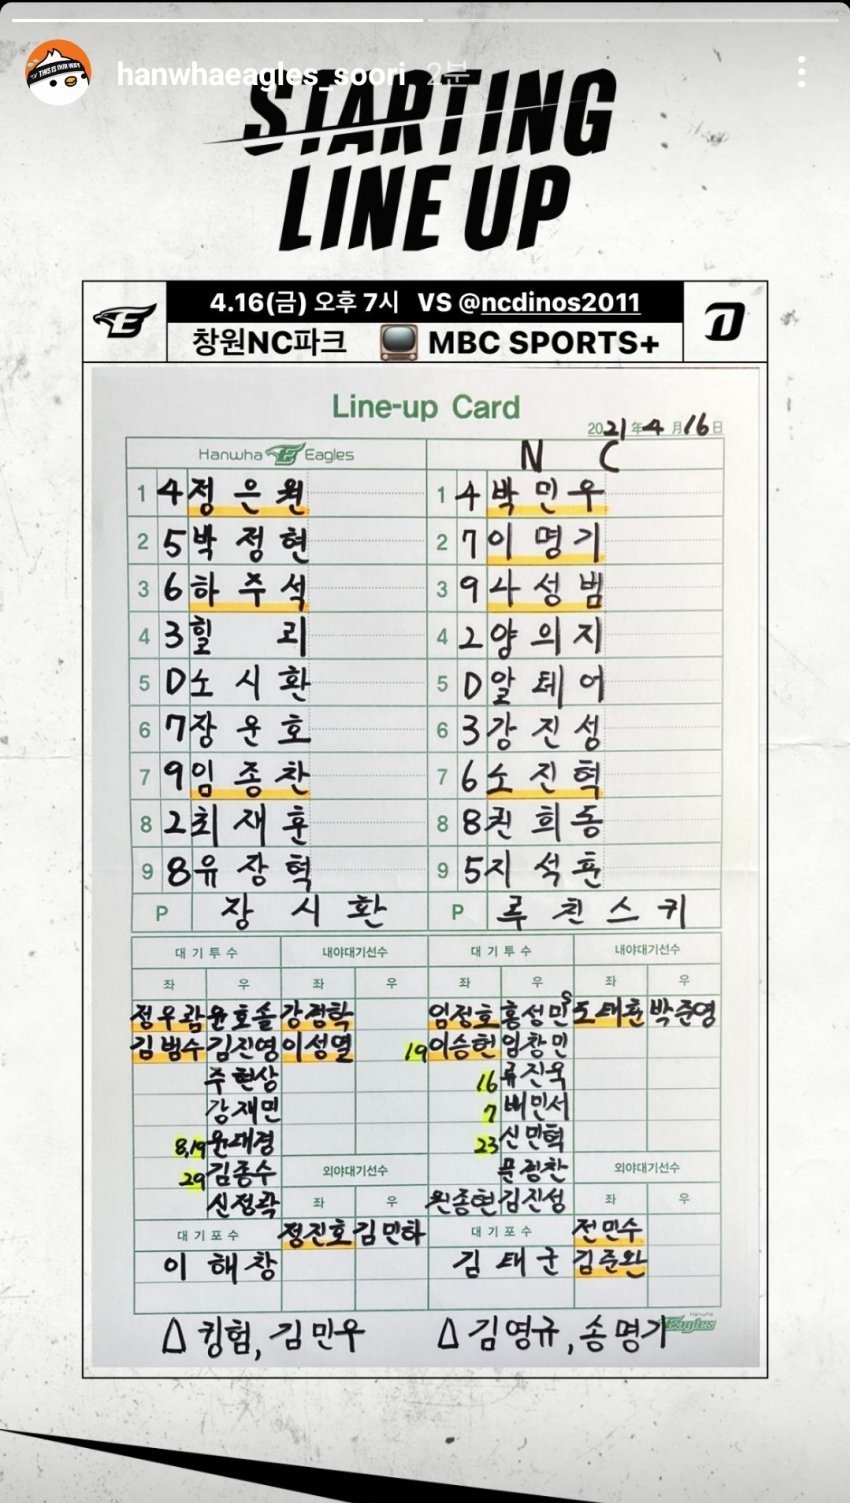 hanwhaeagles_soori 2분
STARTING
LINE UP
4.16(금) 오후 7시 VS @ncdinos2011
창원NC파크 MBC SPORTS+
Line-up Card
2021年4月16日
Hanwha Eagles N C
1 4 정은원 1 4 박민우
2 5 박정현 2 7 이명기
3 6 하주석 3 9 나성범
4 3 힐리 4 2 양의지
5 D 노시환 5 D 알테어
6 7 장운호 6 3 강진성
7 9 임종찬 7 6 노진혁
8 2 최재훈 8 8 권희동
9 8 유장혁 9 5 지석훈
P 장시환 P 루친스키
대기투수 내야대기선수 대기투수 내야대기선수
좌 우 좌 우 좌 우 좌 우
정우람 윤호솔 강경학 임정호 홍성민 S 도태훈 박준영
김범수 김진영 이성열 19 이승헌 임창민
주현상 16 류진욱
강재민 7 배민서
8,19 윤대경 23 신민혁
29 김종수 외야대기선수 문경찬 외야대기선수
신정락 좌 우 원종현 김진성 좌 우
대기포수 정진호 김민하 대기포수 전민수
이해창 김태군 김준완
△ 킹험, 김민우 △ 김영규, 송명기
Hanwha Eagles